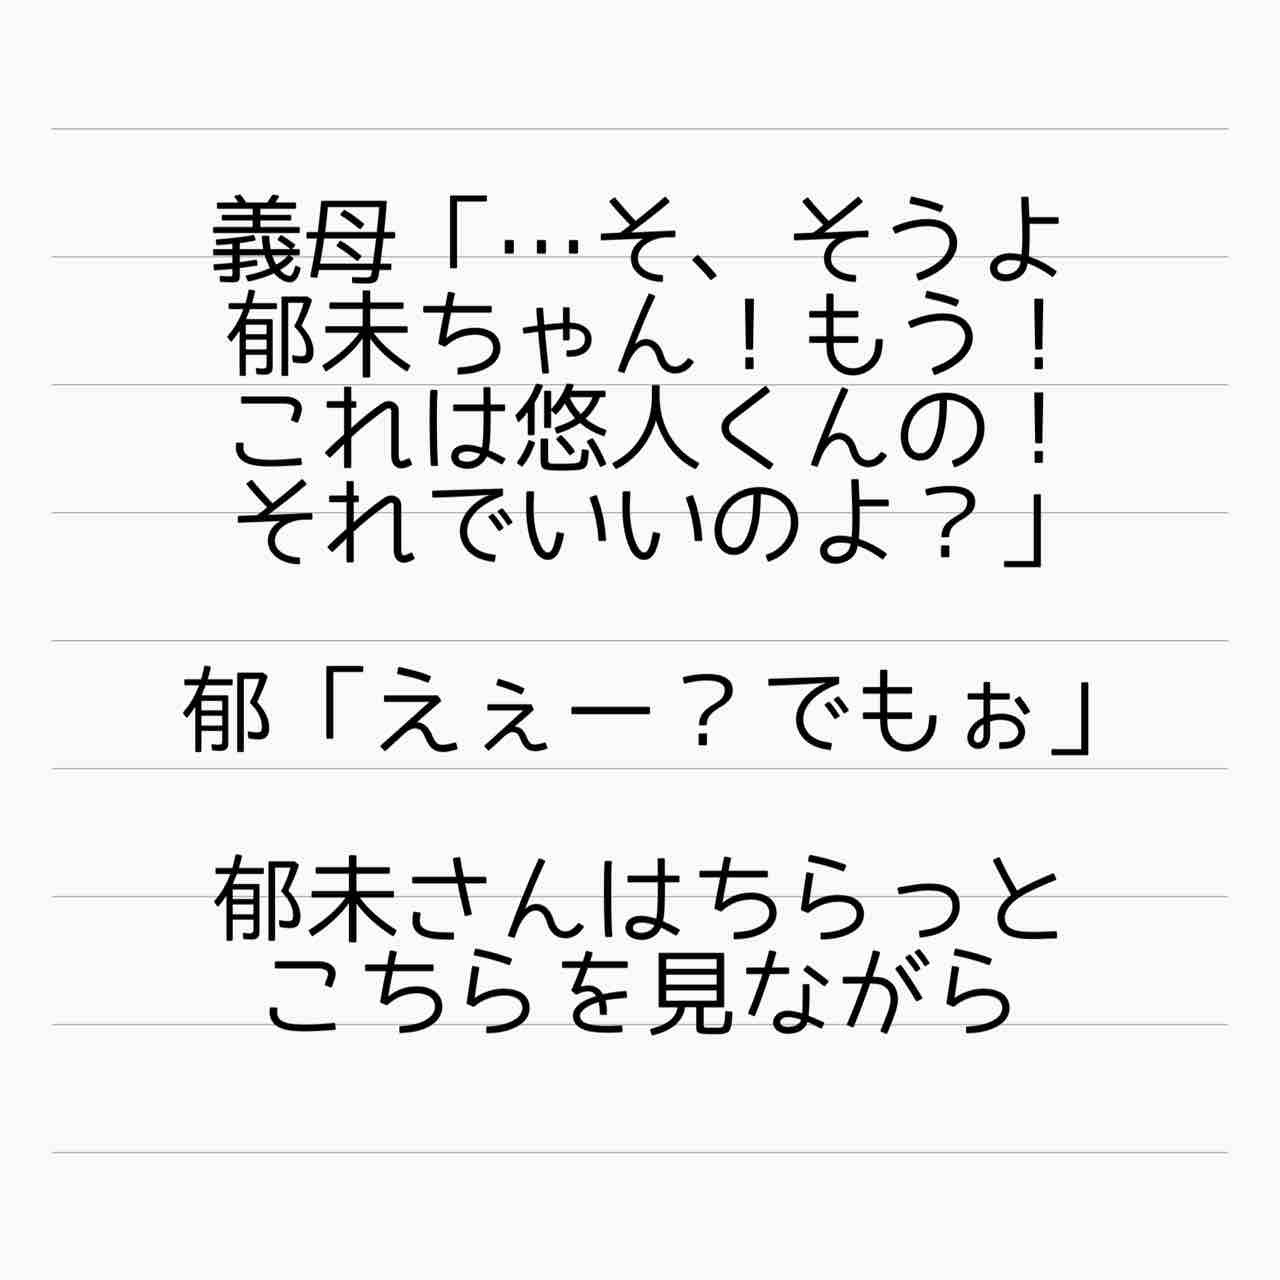 義母「…そ、そうよ
郁未ちゃん！もう！
これは悠人くんの！
それでいいのよ？」
郁「えぇー？でもぉ」
郁未さんはちらっと
こちらを見ながら